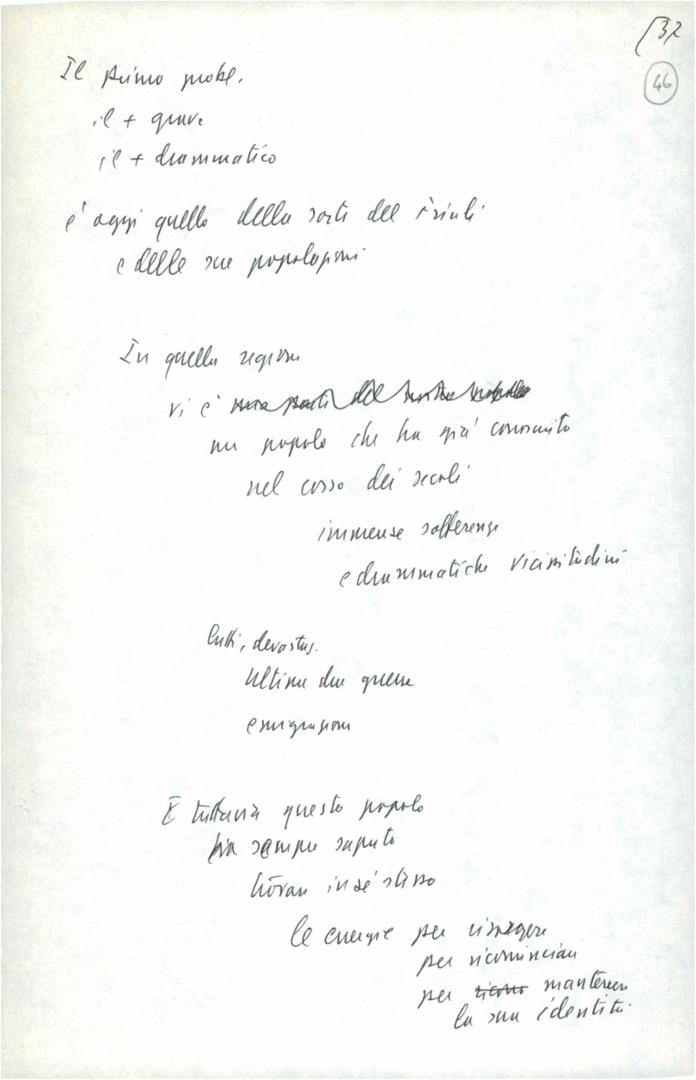 132
46
Il primo probl.
il + grave
il + drammatico
e' oggi quello della sorte del Friuli
e delle sue popolazioni
In quella regione
vi e'
un popolo che ha già conosciuto
nel corso dei secoli
immense sofferenze
e drammatiche vicissitudini
lutti, devastaz.
Ultime due guerre
emigrazioni
E tuttavia questo popolo
ha sempre saputo
trovare in sé stesso
le energie per risorgere
per ricominciare
per mantenere
la sua identità.